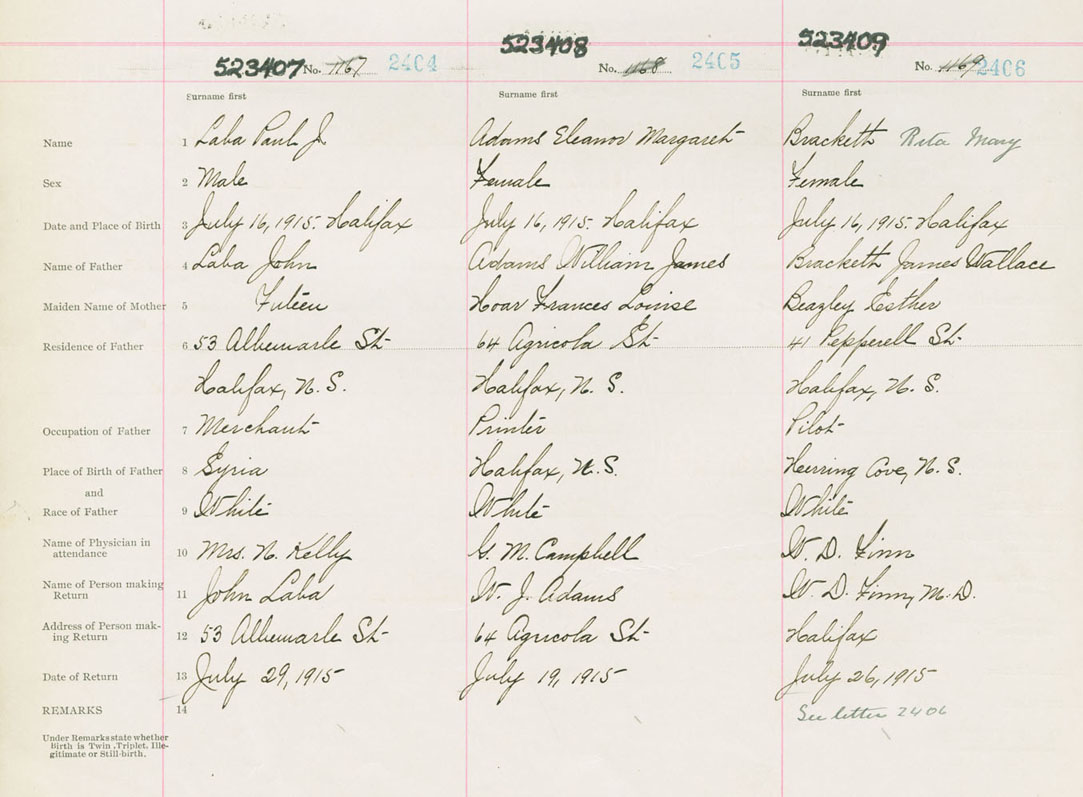 523407 No. 1167 2404 523408 No. 1168 2405 523409 No. 1169 2406
Surname first Surname first Surname first
Name 1 Laba Paul J. Adams Eleanor Margaret Brackett Rita Mary
Sex 2 Male Female Female
Date and Place of Birth 3 July 16, 1915. Halifax July 16, 1915. Halifax July 16, 1915. Halifax
Name of Father 4 Laba John Adams William James Brackett James Wallace
Maiden Name of Mother 5 Hoar Frances Louise Beazley Esther
Residence of Father 6 53 Albemarle St 64 Agricola St 41 Pepperell St
Halifax, N. S. Halifax, N. S. Halifax, N. S.
Occupation of Father 7 Merchant Printer Pilot
Place of Birth of Father 8 Syria Halifax, N. S. Herring Cove, N. S.
and
Race of Father 9 White White White
Name of Physician in
attendance 10 Mrs. N. Kelly G. M. Campbell W. D. Finn
Name of Person making
Return 11 John Laba W. J. Adams W. D. Finn, M. D.
Address of Person mak-
ing Return 12 53 Albemarle St 64 Agricola St Halifax
Date of Return 13 July 29, 1915 July 19, 1915 July 26, 1915
REMARKS 14 See letter 2406
Under Remarks state whether
Birth is Twin, Triplet, Ille-
gitimate or Still-birth.